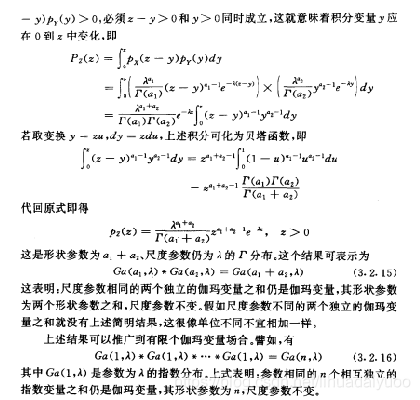 - y)p_Y(y) > 0,必须 z - y > 0 和 y > 0 同时成立,这就意味着积分变量 y 应
在 0 到 z 中变化,即
P_Z(z) = ∫_0^z p_X(z - y)p_Y(y)dy
= ∫_0^z ( λ^{a_1}/Γ(a_1) (z - y)^{a_1-1} e^{-λ(z-y)} ) × ( λ^{a_2}/Γ(a_2) y^{a_2-1} e^{-λy} ) dy
= λ^{a_1+a_2}/(Γ(a_1)Γ(a_2)) e^{-λz} ∫_0^z (z - y)^{a_1-1} y^{a_2-1} dy
若取变换 y = zu, dy = zdu,上述积分可化为贝塔函数,即
∫_0^z (z - y)^{a_1-1} y^{a_2-1} dy = z^{a_1+a_2-1} ∫_0^1 (1 - u)^{a_1-1} u^{a_2-1} du
= z^{a_1+a_2-1} Γ(a_1)Γ(a_2)/Γ(a_1 + a_2)
代回原式即得
p_Z(z) = λ^{a_1+a_2}/Γ(a_1 + a_2) z^{a_1+a_2-1} e^{-λz}, z > 0
这是形状参数为 a_1 + a_2、尺度参数仍为 λ 的 Γ 分布。这个结果可表示为
Ga(a_1,λ) * Ga(a_2,λ) = Ga(a_1 + a_2,λ) (3.2.15)
这表明:尺度参数相同的两个独立的伽玛变量之和仍是伽玛变量,其形状参数
为两个形状参数之和,尺度参数不变。假如尺度参数不同的两个独立的伽玛变
量之和就没有上述简明结果,这很像单位不同不宜相加一样。
上述结果可以推广到有限个伽玛变量场合。譬如,有
Ga(1,λ) * Ga(1,λ) * ⋯ * Ga(1,λ) = Ga(n,λ) (3.2.16)
其中 Ga(1,λ) 是参数为 λ 的指数分布。上式表明:参数相同的 n 个相互独立的
指数变量之和仍是伽玛变量,其形状参数为 n,尺度参数不变。